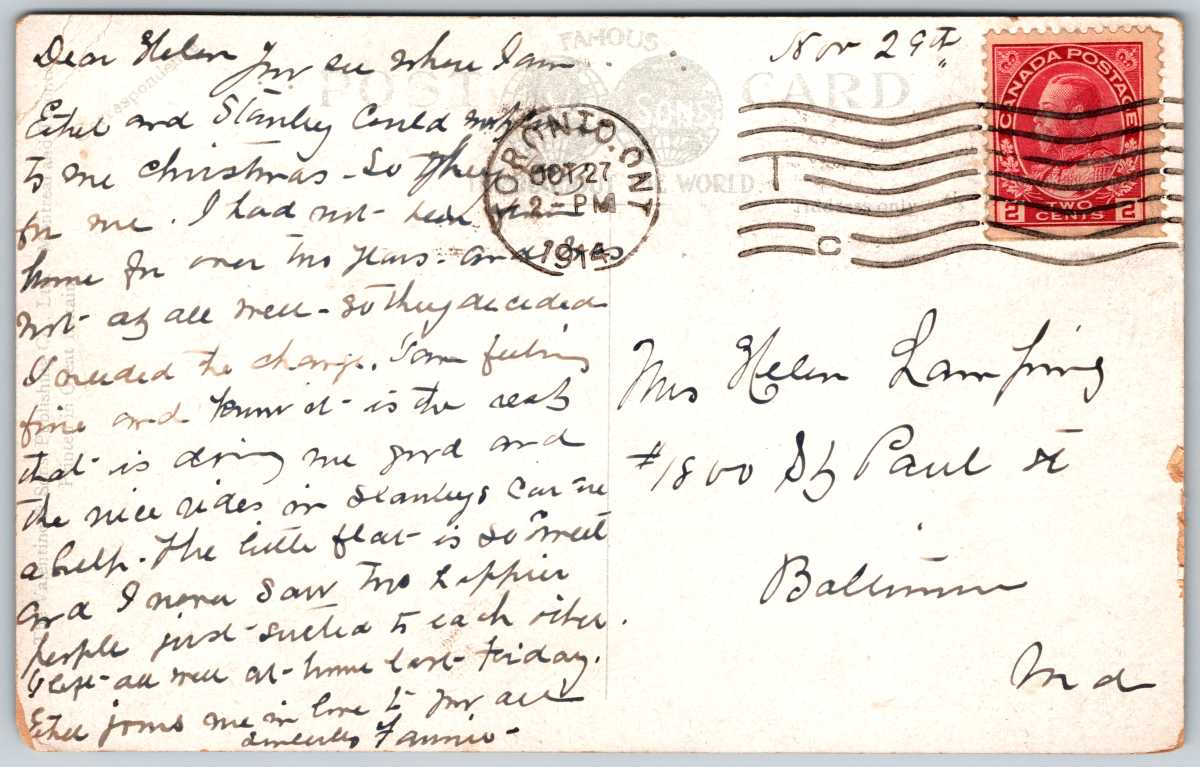 Nov 29th
Dear Helen You see where I am.
Ethel and Stanley could not
to me Christmas - So they
for me. I had not been
home for over two years - and was
not at all well - so they decided
I needed the change. I am feeling
fine and know it is the rest
that is doing me good and
the nice rides in Stanleys car
a help. The little flat is so sweet
and I never saw two happier
people just suited to each other.
I left all well at home last Friday.
Ethel joins me in love to you all
Fannie -
FAMOUS
POST CARD
SONS
THE WORLD
TORONTO, ONT
OCT 27
2 - PM
191
T
C
CANADA POSTAGE
2 TWO CENTS 2
Mrs Helen Lamping
#1800 St Paul st
Baltimore
Md